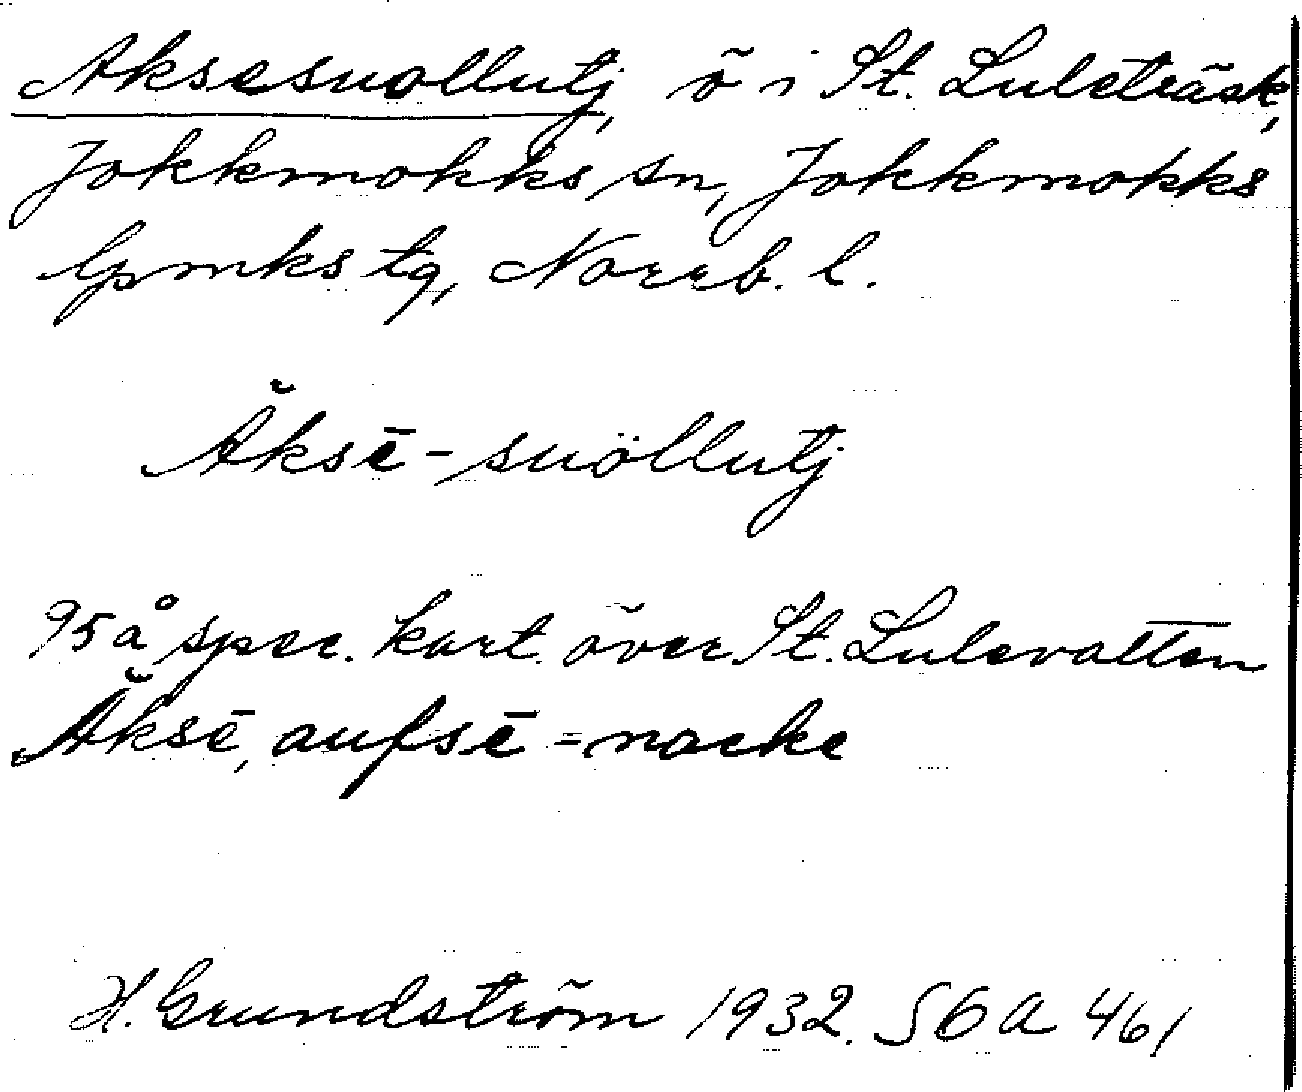 Aksesuollutj, ö i St. Luleträsk,
Jokkmokks sn, Jokkmokks
lpmks tg, Norrb. l.
Ăksē-suöllutj
95 å spec. kart. över St. Lulevatten
Ăksē, aufsē = nacke
H. Grundström 1932. SGA 461